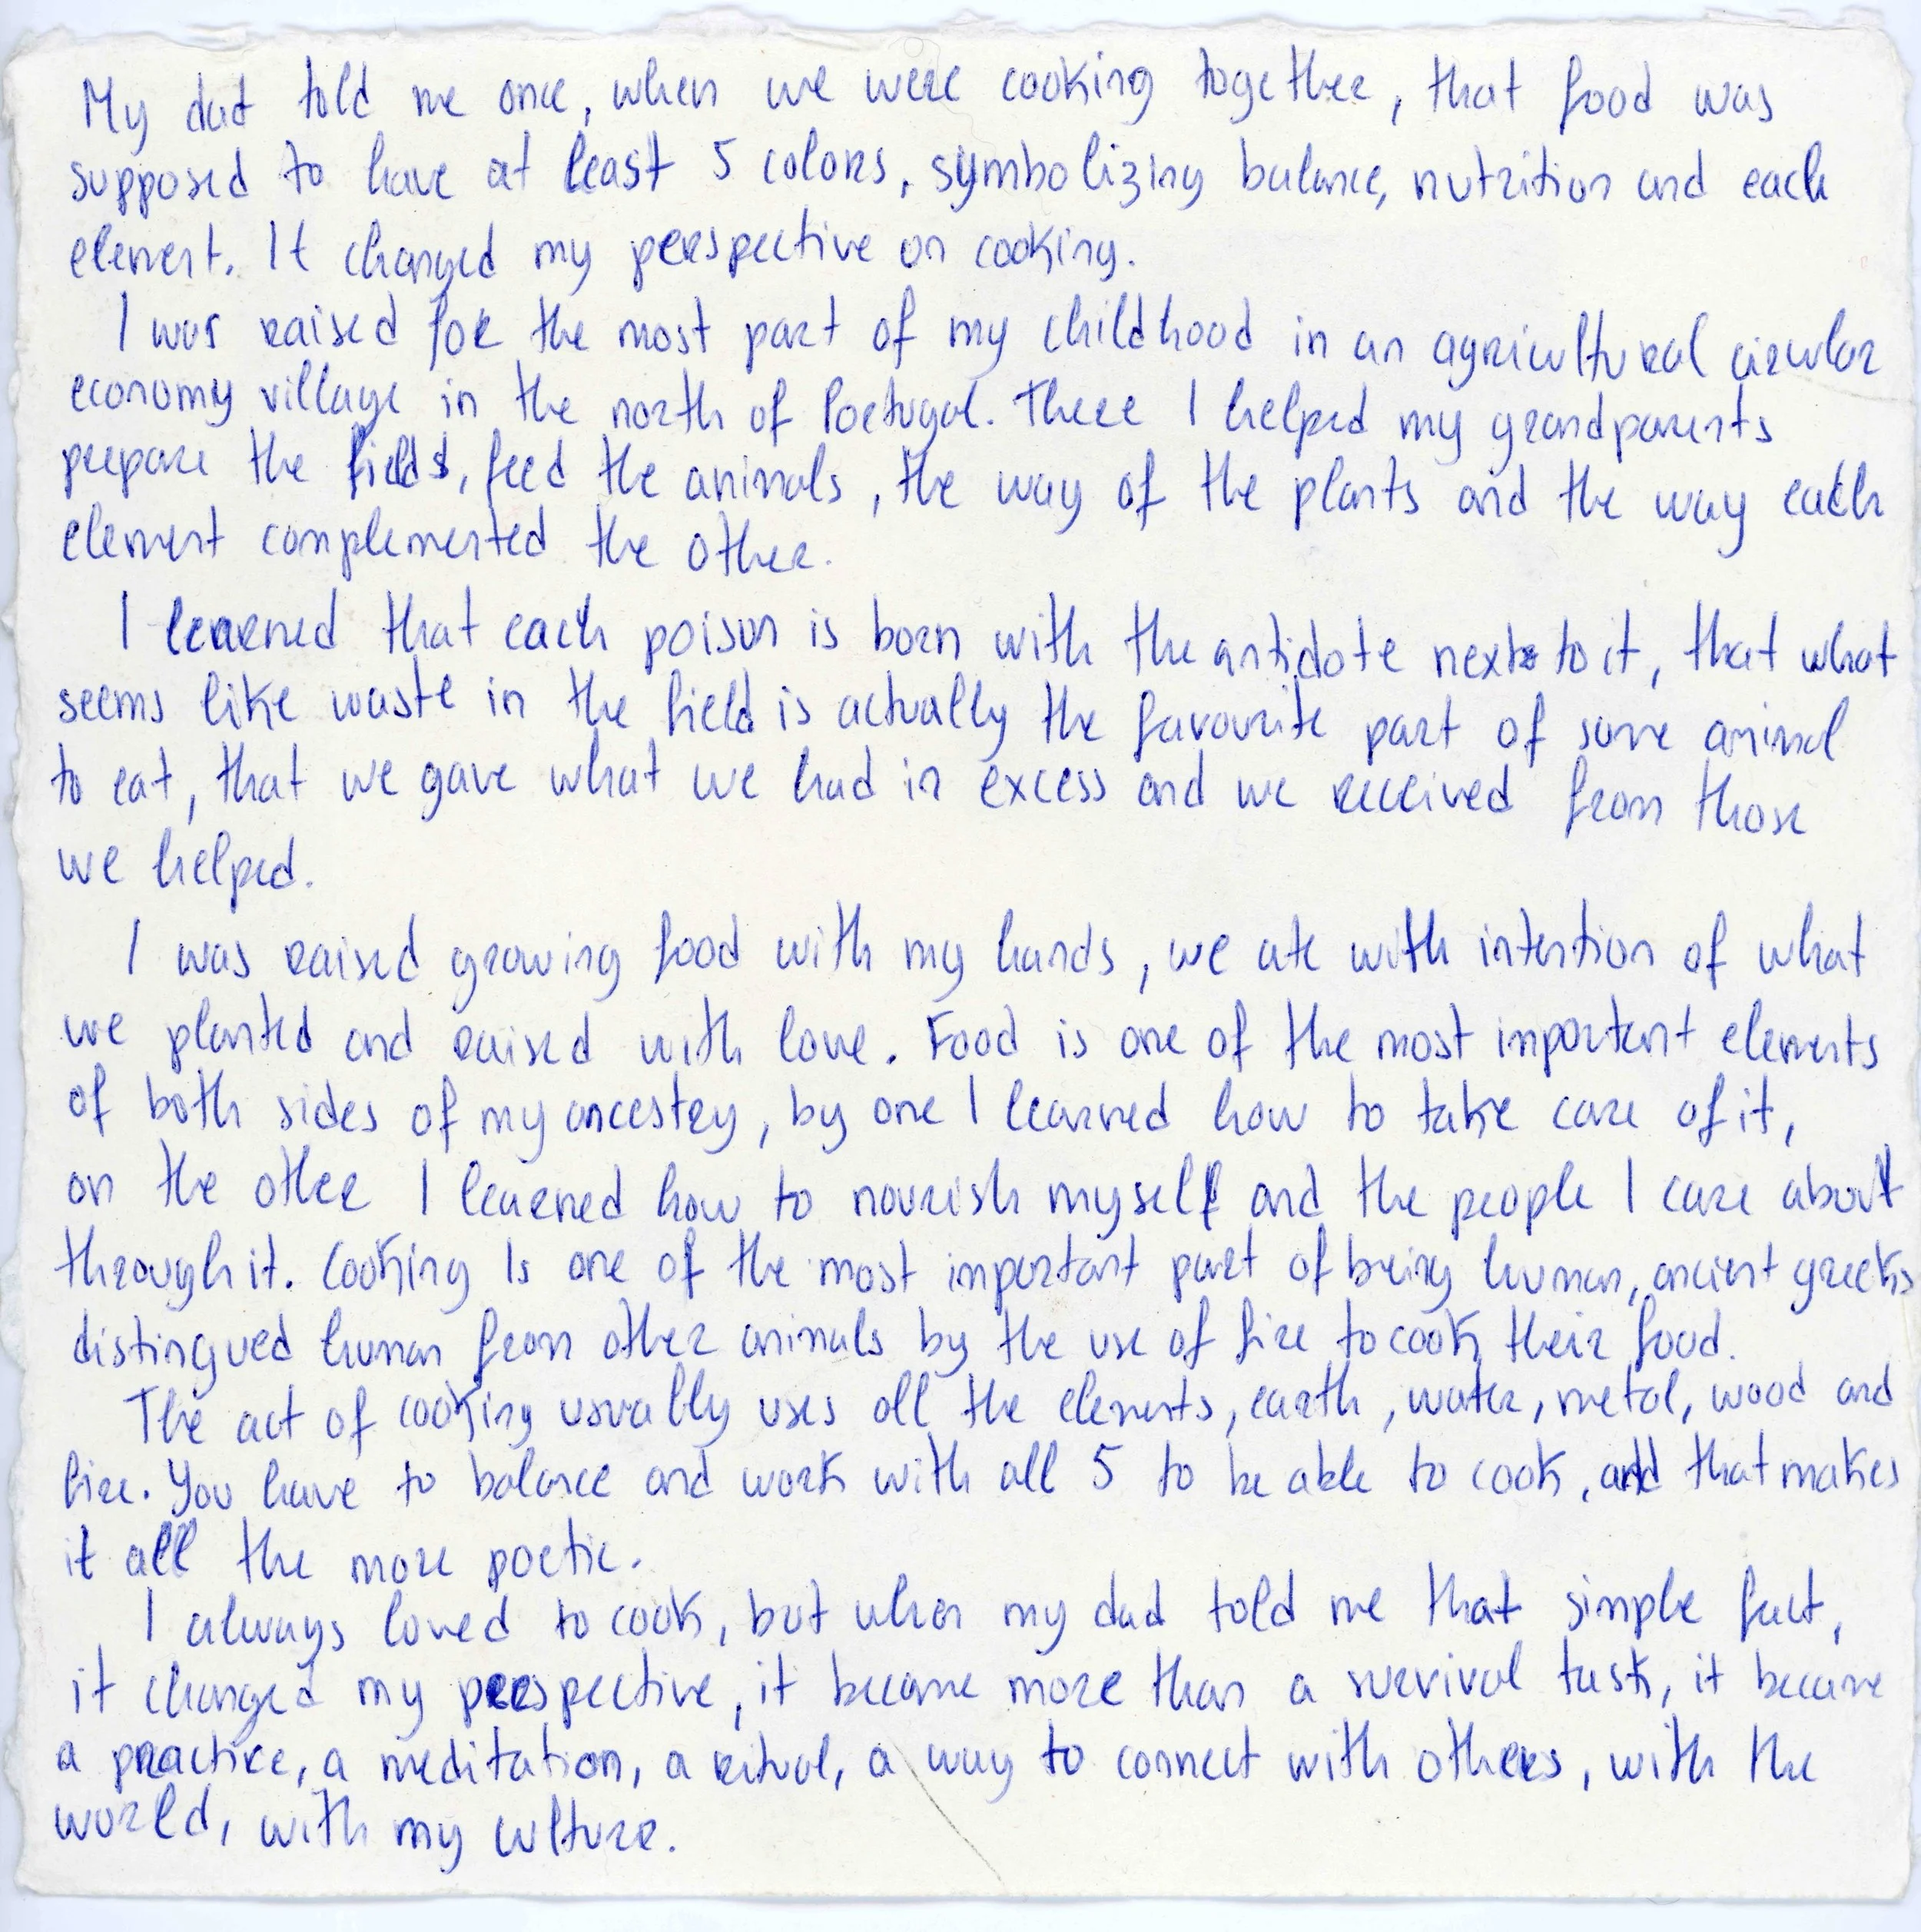 My dad told me once, when we were cooking together, that food was
supposed to have at least 5 colors, symbolizing balance, nutrition and each
element. It changed my perspective on cooking.
I was raised for the most part of my childhood in an agricultural circular
economy village in the north of Portugal. There I helped my grandparents
prepare the fields, feed the animals, the way of the plants and the way each
element complemented the other.
I learned that each poison is born with the antidote next to it, that what
seems like waste in the field is actually the favourite part of some animal
to eat, that we gave what we had in excess and we received from those
we helped.
I was raised growing food with my hands, we ate with intention of what
we planted and raised with love. Food is one of the most important elements
of both sides of my ancestry, by one I learned how to take care of it,
on the other I learned how to nourish myself and the people I care about
through it. Cooking is one of the most important part of being human, ancient greeks
distingued human from other animals by the use of fire to cook their food.
The act of cooking usually uses all the elements, earth, water, metal, wood and
fire. You have to balance and work with all 5 to be able to cook, and that makes
it all the more poetic.
I always loved to cook, but when my dad told me that simple fact,
it changed my perspective, it became more than a survival task, it became
a practice, a meditation, a ritual, a way to connect with others, with the
world, with my culture.